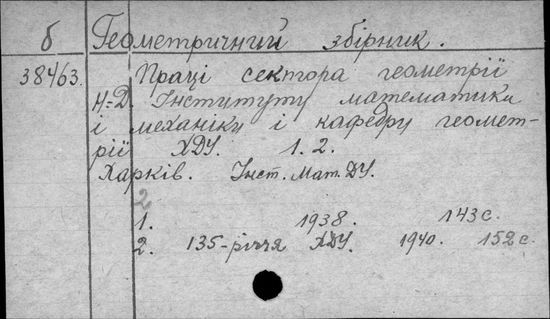 б Геометричний збірник.
38463. Праці сектора геометрії
Н=Д. Інституту математики
і механіки і кафедри геомет-
рії ХДУ. 1. 2.
Харків. Інст. Мат. ДУ.
2
1. 1938. 143 с.
2. 135-річчя ХДУ. 1940. 152 с.